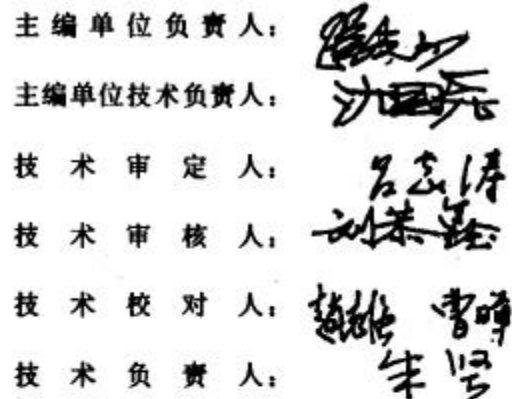 主编单位负责人：
主编单位技术负责人：沈国尧
技术审定人：吕志涛
技术审核人：
技术校对人：曹晖
技术负责人：朱坚